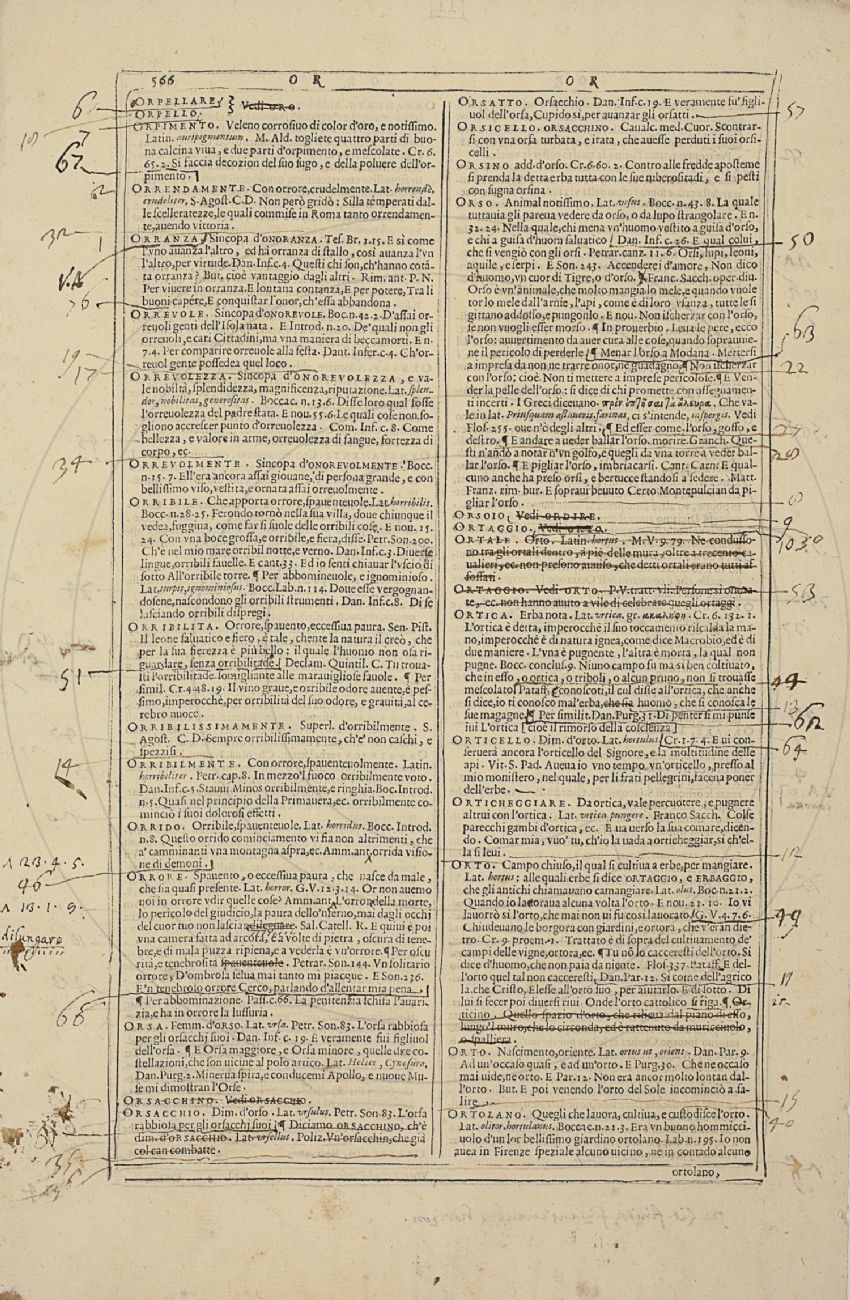 566 OR OR
ORPELLARE,
ORPELLO, } Vedi ORO.
ORPIMENTO. Veleno corrosiuo di color d'oro, e notissimo.
Latin. auripigmentum. M. Ald. togliete quattro parti di buo-
na calcina viua, e due parti d'orpimento, e mescolate. Cr. 6.
65. 2. Si faccia decozion del suo sugo, e della poluere dell'or-
pimento.
ORRENDAMENTE. Con orrore, crudelmente. Lat. horrendè,
crudeliter. S. Agost. C. D. Non però gridò: Silla temperati dal-
le scelleratezze, le quali commise in Roma tanto orrendamen-
te, auendo vittoria.
ORRANZA. Sincopa d'ONORANZA. Tes. Br. 1. 15. E sì come
l'vno auanza l'altro, ed ha orranza di stallo, così auanza l'vn
l'altro, per virtude. Dan. Inf. c. 4. Questi chi son, ch'hanno cotã-
ta orranza? But. cioè vantaggio dagli altri. Rim. ant. P. N.
Per viuere in orranza. E lontana contanza, E per potere, Tra li
buoni capére, E conquistar l'onor, ch'essa abbandona.
ORREVOLE. Sincopa d'ONOREVOLE. Bocc. n. 42. 2. D'assai or-
reuoli genti dell'Isola nata. E Introd. n. 20. De' quali non gli
orreuoli, e cari Cittadini, ma vna maniera di beccamorti. E n.
7. 4. Per comparire orreuole alla festa. Dant. Infer. c. 4. Ch'or-
reuol gente possedea quel loco.
ORREVOLEZZA. Sincopa d'ONOREVOLEZZA, e va-
le nobiltà, splendidezza, magnificenza, riputazione. Lat. splen-
dor, nobilitas, generositas. Boccac. n. 13. 6. Disse loro qual fosse
l'orreuolezza del padre stata. E nou. 55. 6. Le quali cose non so-
gliono accrescer punto d'orreuolezza. Com. Inf. c. 8. Come
bellezza, e valore in arme, orreuolezza di sangue, fortezza di
corpo, ec.
ORREVOLMENTE. Sincopa d'ONOREVOLMENTE. Bocc.
n. 15. 7. Ell'era ancora assai giouane, di persona grande, e con
bellissimo viso, vestita, e ornata assai orreuolmente.
ORRIBILE. Che apporta orrore, spauenteuole. Lat. horribilis.
Bocc. n. 28. 25. Ferondo tornò nella sua villa, doue chiunque il
vedea, fuggiua, come far si suole delle orribili cose. E nou. 15.
24. Con vna boce grossa, e orribile, e fiera, disse. Petr. Son. 200.
Ch'è nel mio mare orribil notte, e verno. Dan. Inf. c. 3. Diuerse
lingue, orribili fauelle. E cant. 33. Ed io senti chiauar l'vscio di
sotto All'orribile torre. ¶ Per abbomineuole, e ignominioso.
Lat. turpis, ignominiosus. Bocc. Lab. n. 114. Doue esse vergognan-
dosene, nascondono gli orribili strumenti. Dan. Inf. c. 8. Di se
lasciando orribili dispregi.
ORRIBILITA. Orrore, spauento, eccessiua paura. Sen. Pist.
Il leone saluatico e fiero, è tale, chente la natura il creò, che
per la sua fierezza è più bello: il quale l'huomo non osa ri-
guardare, senza orribilitade. Declam. Quintil. C. Tu troua-
sti l'orribilitade somigliante alle marauigliose fauole. ¶ Per
simil. Cr. 4. 48. 19. Il vino graue, e orribile odore auente, è pes-
simo, imperocchè, per orribilità del suo odore, e grauità, al ce-
rebro nuoce.
ORRIBILISSIMAMENTE. Superl. d'orribilmente. S.
Agost. C. D. Sempre orribilissimamente, ch'e' non caschi, e
spezzisi.
ORRIBILMENTE. Con orrore, spauenteuolmente. Latin.
horribiliter. Petr. cap. 8. In mezzo'l fuoco orribilmente voto.
Dan. Inf. c. 5. Stauui Minos orribilmente, e ringhia. Boc. Introd.
n. 5. Quasi nel principio della Primauera, ec. orribilmente co-
minciò i suoi dolorosi effetti.
ORRIDO. Orribile, spauenteuole. Lat. horridus. Bocc. Introd.
n. 8. Questo orrido cominciamento vi fia non altrimenti, che
a' camminanti vna montagna aspra, ec. Amm. ant. orrida visio-
ne di demoni.
ORRORE. Spauento, o eccessiua paura, che nasce da male,
che sia quasi presente. Lat. horror. G. V. 12. 3. 14. Or non auemo
noi in orrore vdir quelle cose? Amm. ant. L'orrore della morte,
lo pericolo del giudicio, la paura dello'nferno, mai dagli occhi
del cuor tuo non lasciar dilegnare. Sal. Catell. R. E quiui è poi
vna camera fatta ad arcora, e a volte di pietra, oscura di tene-
bre, e di mala puzza ripiena, e a vederla è vn'orrore. ¶ Per oscu
rità, e tenebrosità spauenteuole. Petrar. Son. 144. Vn solitario
orrore, D'ombrosa selua mai tanto mi piacque. E Son. 236.
E'n tenebroso orrore Cerco, parlando d'allentar mia pena.
¶ Per abbominazione. Pass. c. 66. La penitenzia schifa l'auari-
zia, e ha in orrore la lussuria.
ORSA. Femm. d'ORSO. Lat. vrsa. Petr. Son. 83. L'orsa rabbiosa
per gli orsacchi suoi. Dan. Inf. c. 19. E veramente fui figliuol
dell'orsa. ¶ E Orsa maggiore, e Orsa minore, quelle due co-
stellazioni, che son uicine al polo artico. Lat. Helice, Cynosura.
Dan. Purg. 2. Minerua spira, e conducemi Apollo, e nuoue Mu-
se mi dimostran l'Orse.
ORSACCHINO. Vedi ORSACCHIO.
ORSACCHIO. Dim. d'orso. Lat. vrsulus. Petr. Son. 83. L'orsa
rabbiosa per gli orsacchi suoi. ¶ Diciamo ORSACCHINO, ch'è
dim. d'ORSACCHIO. Lat. vrsellus. Poliz. Vn'orsacchin, che già
col can combatte.
ORSATTO. Orsacchio. Dan. Inf. c. 19. E veramente fu' figli-
uol dell'orsa, Cupido sì, per auanzar gli orsatti.
ORSICELLO. ORSACCHINO. Caualc. med. Cuor. Scontrar-
si con vna orsa turbata, e irata, che auesse perduti i suoi orsi-
celli.
ORSINO add. d'orso. Cr. 6. 60. 2. Contro alle fredde aposteme
si prenda la detta erba tutta con le sue tuberositadi, e si pesti
con sugna orsina.
ORSO. Animal notissimo. Lat. vrsus. Bocc. n. 43. 8. La quale
tuttauia gli pareua vedere da orso, o da lupo strangolare. E n.
32. 24. Nella quale, chi mena vn'huomo vestito a guisa d'orso,
e chi a guisa d'huom saluatico. Dan. Inf. c. 26. E qual colui,
che si vengiò con gli orsi. Petrar. canz. 11. 6. Orsi, lupi, leoni,
aquile, e serpi. E Son. 243. Accenderei d'amore, Non dico
d'huomo, vn cuor di Tigre, o d'orso. Franc. Sacch. oper. diu.
Orso è vn'animale, che molto mangia lo mele, e quando vuole
tor lo mele dall'arnie, l'api, come è di loro vsanza, tutte le si
gittano addosso, e pungonlo. E nou. Non ischerzar con l'orso,
se non vuogli esser morso. ¶ In prouerbio. Leua le pere, ecco
l'orso: auuertimento da auer cura alle cose, quando soprauuie-
ne il pericolo di perderle. ¶ Menar l'orso a Modana. Mettersi
a impresa da non ne trarre onor, ne guadagno. ¶ Non ischerzar
con l'orso: cioè. Non ti mettere a imprese pericolose. ¶ E Ven-
der la pelle dell'orso: si dice di chi promette con assegnamen-
ti incerti. I Greci diceuano. πρὶν ὀπτῆσαι τὰ ἄλευρα. Che va-
le in lat. Priusquam assaueris, farinas, ci s'intende, inspergis. Vedi
Flos. 255. oue n'è degli altri. ¶ Ed esser come l'orso, goffo, e
destro. ¶ E andare a ueder ballar l'orso. morire. Granch. Que-
sti n'andò a notar n'vn golfo, e quegli da vna torre a veder bal-
lar l'orso. ¶ E pigliar l'orso, imbriacarsi. Cant. Carn. E qual-
cuno anche ha preso orsi, e bertucce standosi a sedere. Matt.
Franz. rim. bur. E soprauì beuuto Certo Montepulcian da pi-
gliar l'orso.
ORSOIO. Vedi ORDIRE.
ORTAGGIO. Vedi ORTO.
ORTALE. Orto. Latin. hortus. M. V. 9. 79. Ne condusso-
no tra gli ortali dentro, a piè delle mura, oltre a trecento ca-
ualieri, ec. non presono auuiso, che detti ortali erano tutti af-
fossati.
ORTAGGIO. Vedi ORTO. P. V. tratt. vli. Persone sì onora-
te, ec. non hanno auuto a vile di celebrare quegli ortaggi.
ORTICA. Erba nota. Lat. vrtica. gr. ακαλήφη. Cr. 6. 132. 1.
L'ortica è detta, imperocchè il suo toccamento riscalda la ma-
no, imperocchè è di natura ignea, come dice Macrobio, ed è di
due maniere. L'vna è pugnente, l'altra è morta, la qual non
pugne. Bocc. conclus. 9. Niuno campo fu mai sì ben coltiuato,
che in esso, o ortica, o triboli, o alcun pruno, non si trouasse
mescolato. Pataff. E conosciti, il cul disse all'ortica, che anche
si dice, io ti conosco mal'erba, che sia huomo, che si conosca le
sue magagne. ¶ Per similit. Dan. Purg. 31. Di penter sì mi punse
iui l'Ortica [cioè il rimorso della coscienza]
ORTICELLO. Dim. d'orto. Lat. hortulus. Cr. 1. 7. 4. E ui con-
seruerà ancora l'orticello del Signore, e la moltitudine delle
api. Vit. S. Pad. Aueua io vno tempo vn'orticello, presso al
mio monistero, nel quale, per li frati pellegrini, facea poner
dell'erbe.
ORTICHEGGIARE. Da ortica, vale percuotere, e pugnere
altrui con l'ortica. Lat. vrtica pungere. Franco Sacch. Colse
parecchi gambi d'ortica, ec. E ua uerso la sua comare, dicen-
do. Comar mia, vuo' tu, ch'io la uada a orticheggiar, sì ch'el-
la si leui.
ORTO. Campo chiuso, il qual si cultiua a erbe, per mangiare.
Lat. hortus: alle quali erbe si dice ORTAGGIO, e ERBAGGIO,
che gli antichi chiamauano camangiare. Lat. olus. Boc. n. 21. 2.
Quando io lauoraua alcuna volta l'orto. E nou. 21. 10. Io vi
lauorrò sì l'orto, che mai non ui fu così lauorato. G. V. 4. 7. 6.
Chiudeuano le borgora con giardini, e ortora, che v'eran die-
tro. Cr. 9. proem. 1. Trattato è di sopra del cultiuamento de'
campi delle vigne, ortora, ec. ¶ Tu nò lo cacceresti dell'orto. Si
dice d'huomo, che non paia da niente. Flos. 337. Pataff. E del-
l'orto quel tal non cacceresti. Dan. Par. 12. Sì come dell'agrico
la, che Cristo, Elesse all'orto suo, per aiutarlo. E di sotto. Di
lui si fecer poi diuersi riui Onde l'orto cattolico si riga. ¶ Or-
ticino. Quello spazio d'orto, che rileua dal piano di esso,
lungo'l muro, che lo circonda, ed è rattenuto da muricciuolo,
o spalliera.
ORTO. Nascimento, oriente. Lat. ortus us, oriens. Dan. Par. 9.
Ad un'occaso quasi, e ad un'orto. E Purg. 30. Che ne occaso
mai uide, ne orto. E Par. 12. Non era ancor molto lontan dal-
l'orto. But. E poi venendo l'orto del Sole incominciò a sa-
lire.
ORTOLANO. Quegli che lauora, cultiua, e custodisce l'orto.
Lat. olitor, hortulanus. Boccac. n. 21. 3. Era vn buono hommicci-
uolo d'un lor bellissimo giardino ortolano. Lab. n. 195. Io non
auea in Firenze speziale alcuno uicino, ne in contado alcuno
ortolano,
6
18
7
62
32
1
76
19
17
34
51
14
A 23. 4. 5.
46
A 13. 1. 9.
dileguare
68
35
57
50
63
22
27
28
0
9
103
53
44
13
62
64
12
49
11
15
40